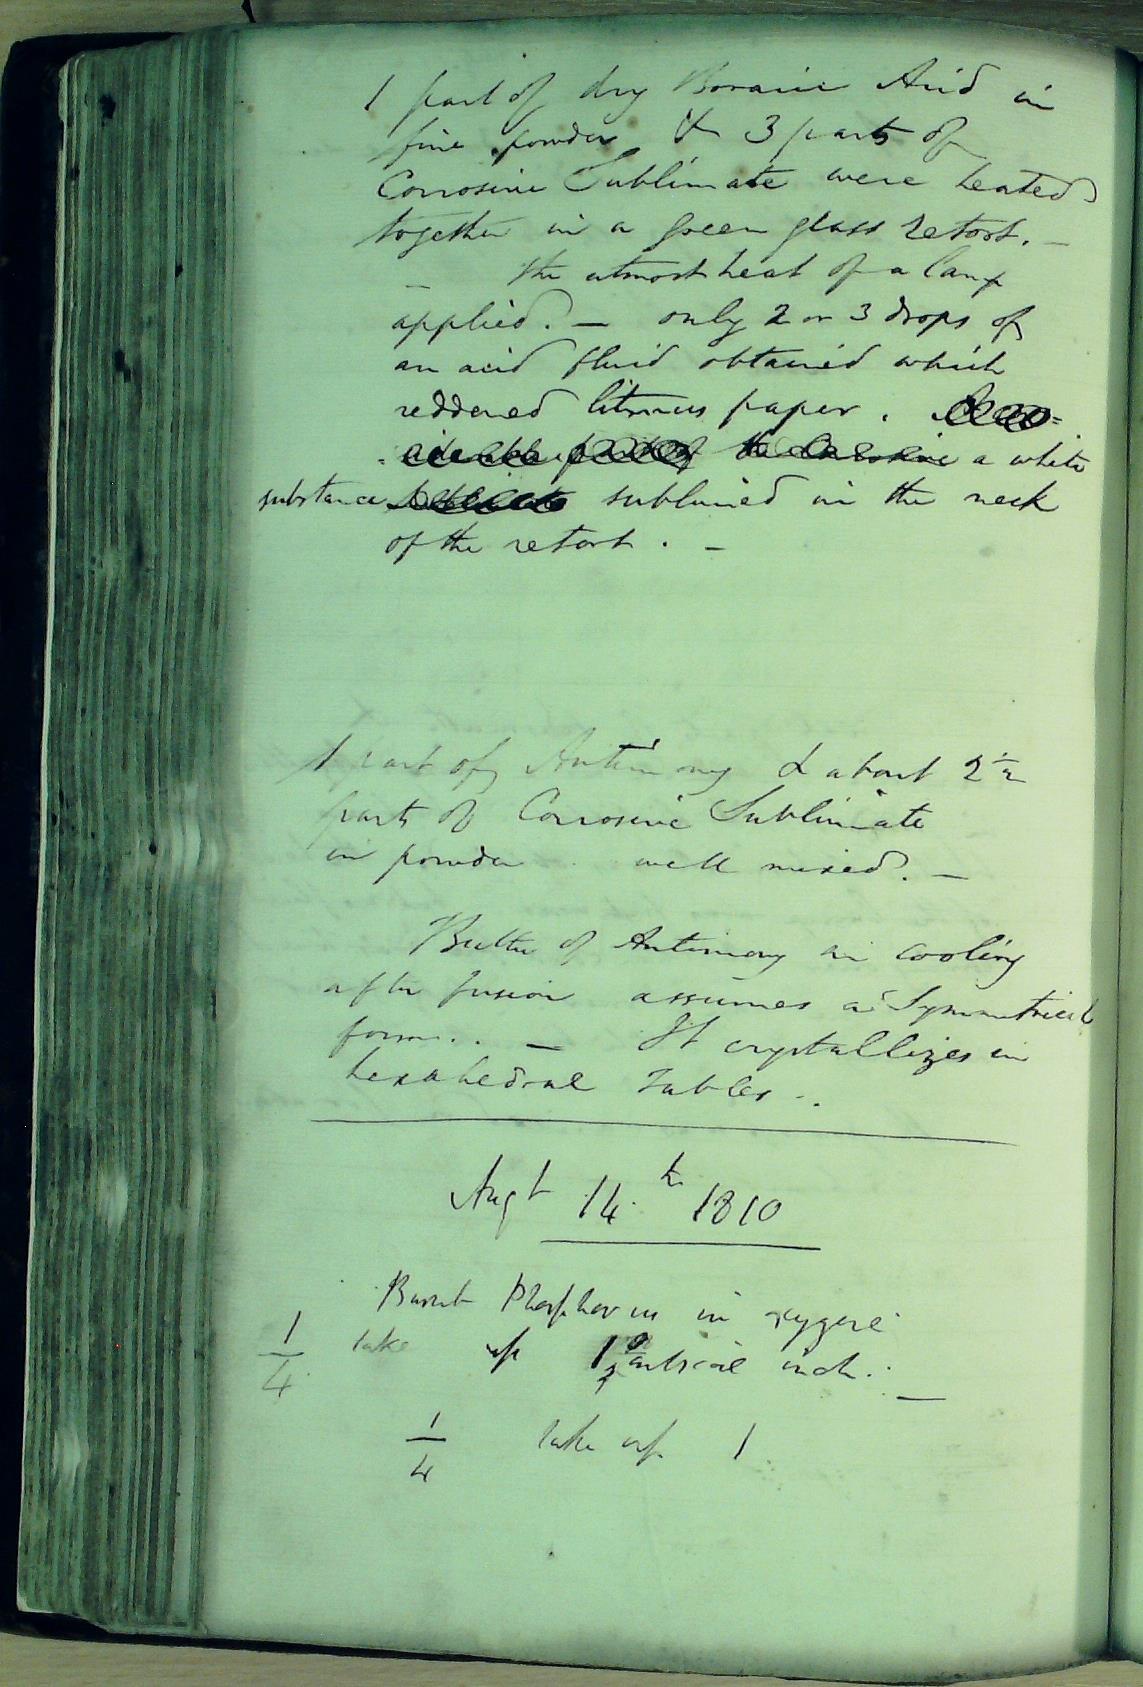 1 part of dry Boracic Acid in
fine powder & 3 parts of
Corrosive Sublimate were heated
together in a green glass retort. –
– the utmost heat of a lamp
applied. – only 2 or 3 drops of
an acid fluid obtained which
reddened litmus paper.
a white
substance sublimed in the neck
of the retort. –
1 part of Antimony & about 2 1/2
parts of Corrosive Sublimate
in powder well mixed. –
Butter of Antimony in cooling
after fusion assumes a Symmetrical
form.. – It crystallizes in
hexahedral Tables –.
Augt 14th 1810
Burnt Phosphorus in oxygene
1/4 take up 1 cubical inch. –
1/4 take up 1